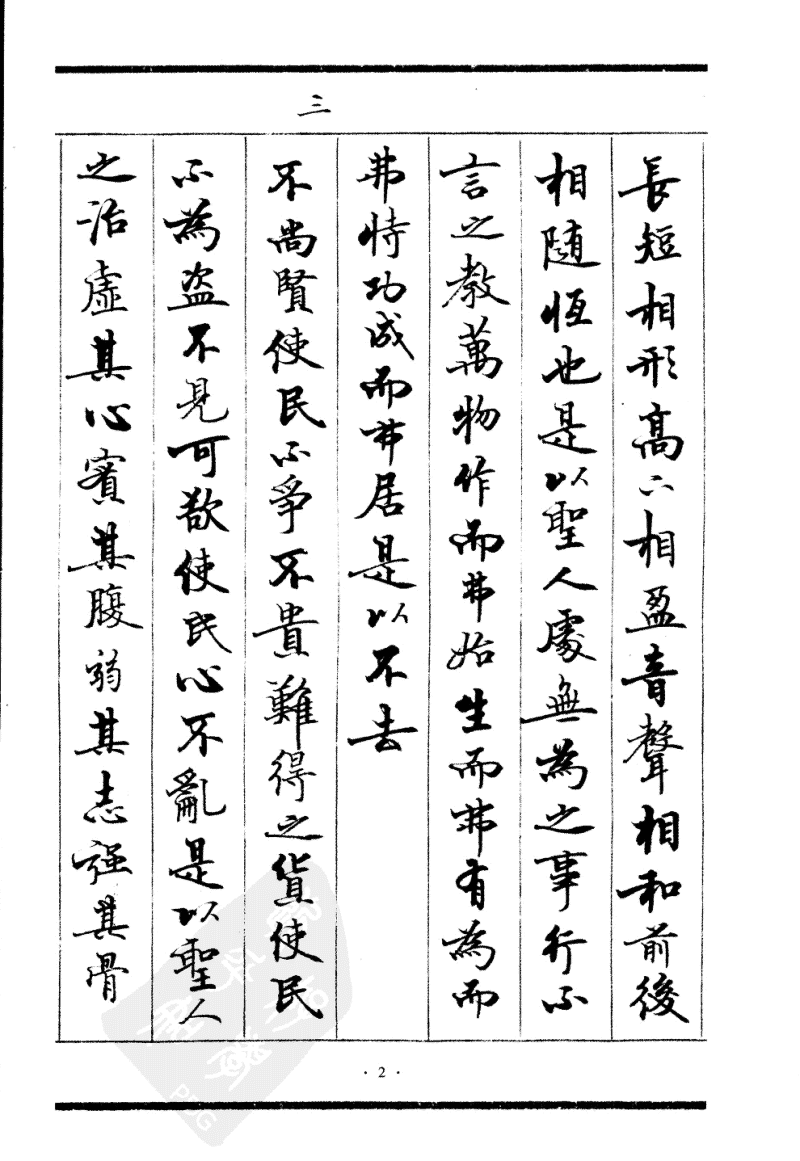 三
長短相形高下相盈音聲相和前後
相隨恆也是以聖人處無為之事行不
言之教萬物作而弗始生而弗有為而
弗恃功成而弗居是以不去
不尚賢使民不爭不貴難得之貨使民
不為盜不見可欲使民心不亂是以聖人
之治虛其心實其腹弱其志強其骨
· 2 ·
PDG